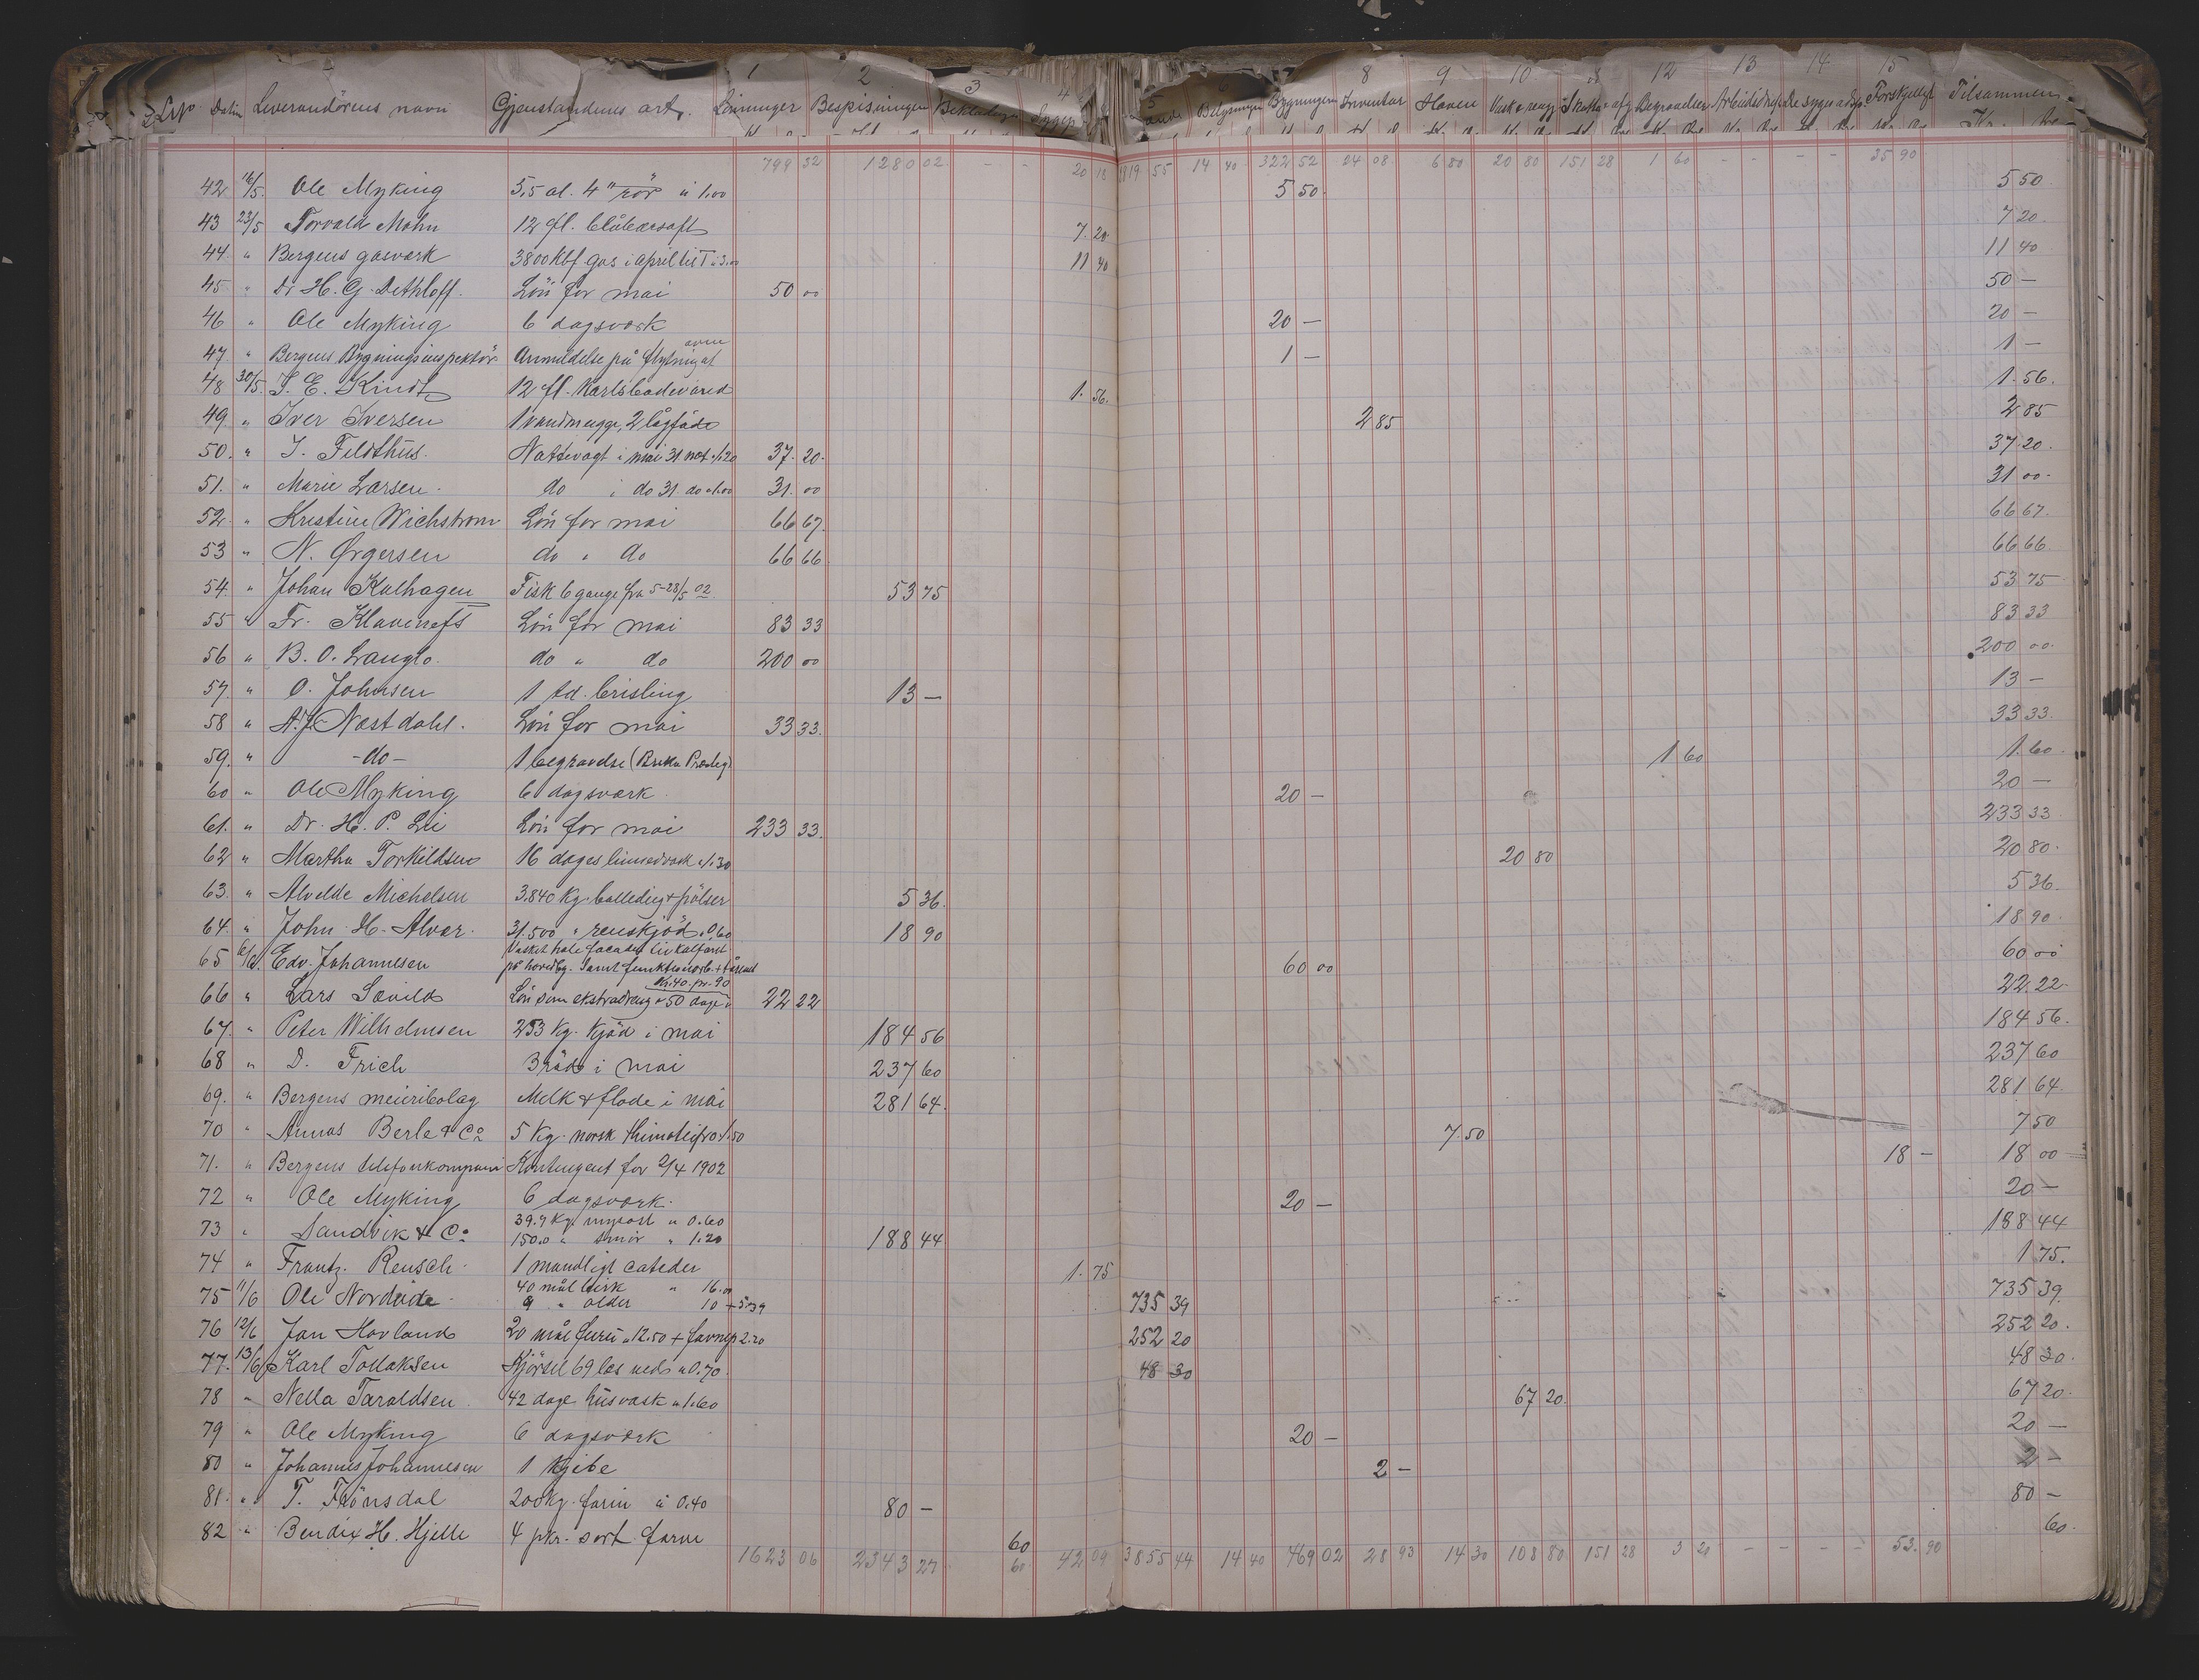 1 2 3 4 5 6 8 9 10 12 13 14 15
Dat. Leverandörens navn Gjenstandens art. Lönninger Bespisningen Beklædningen Belysningen Bygningen Inventar Haven Begravelser Forskjelligt Tilsammen
799 32 1280 02 - - 20 14 40 322 52 24 08 6 80 20 80 151 28 1 60 - - - - 35 90
42 16/5 Ole Myking 5,5 al. 4" rör à 1.00 5 50 5 50
43 23/5 Torvald Mohn 12 fl. blåbærsaft 7. 20 7 20
44 " Bergens gasværk 3800 kbf gas i april 11 40 11 40
45 " Dr H. G. Dethloff. Lön for mai 50 00 50 —
46 " Ole Myking 6 dagsværk 20 — 20 —
47 " Bergens Bygningsinspektör Anmeldelse på flytning af ovn 1 — 1 —
48 30/5 J. E. Kindt 12 fl. Karlsbadervand 1. 56. 1. 56.
49 " Iver Iversen 1 vandmugge, 2 lågfade 2 85 2 85
50. " J. Feldthus. Nattevagt i mai 31 næt. à 1.20 37. 20. 37 20.
51. " Marie Larsen. do i do 31 do à 1.00 31. 00 31 00.
52. " Kristine Wichstrøm Lön for mai 66 67. 66 67.
53 " N. Ørgersen do " do 66 66 66 66
54 " Johan Kalhagen Fisk 6 gange fra 5-28/5 02 53 75 53 75
55 " Fr. Klavenefs Lön for mai 83 33 83 33
56 " B. O. Langlo. do " do 200 00 200 00.
57. " O. Johnsen 1 td. brisling 13 — 13 —
58 " A. J. Næstdahl. Lön for mai 33 33. 33 33.
59. " -do- 1 begravelse 1 60 1. 60
60 " Ole Myking 6 dagsværk 20 — 20 —
61. " Dr. H. P. Lie Lön for mai 233 33. 233 33
62 " Martha Torkildsen 16 dages linnedvask à 1.30 20 80 20 80.
63. " Alvelde Michelsen 3.840 kg. balledeig + pölser 5 36. 5 36.
64. " John H. Alver. 31.500 " renskjöd à 0.60 18 90 18 90.
65 6/6. Edv. Johannesen Vasket hele facaden
på hovedbg. Samt 60 00 60 00
66 " Lars Sævild Kr. 40. pr. 90
Lön som ekstradreng 50 dage 22 22 22. 22.
67. " Peter Wilhelmsen 253 kg. kjöd i mai 184 56 184 56.
68 " D. Frich Bröd i mai 237 60 237 60
69. " Bergens meieribolag Melk & flöde i mai 281 64. 281 64.
70 " Annas Berle & Co 5 kg. norsk thimoteifrö à 1.50 7. 50 7 50
71. " Bergens telefonkompani Kontingent for 2/4 1902 18 — 18 00
72 " Ole Myking 6 dagsværk. 20 — 20 —
73 " Sandvik & Co 39.9 kg. myseost à 0.60
150.0 " smör " 1.20 188 44 188 44
74 " Frantz. Rensch. 1 mandligt cateder 1. 75 1 75.
75 11/6 Ole Nordeide. 40 mål birk " 16.00
9 " older 10 + 5.39 735 39 735 39
76 12/6 Jan Hovland 20 mål furu à 12.50 + favnep 2.20 252 20 252 20.
77. 13/6 Karl Tollaksen Kjörsel 69 læs ved à 0.70. 48 30 48 30.
78 " Nella Taraldsen. 42 dage husvask à 1.60 67 20. 67 20.
79 " Ole Myking 6 dagsværk 20 — 20 —
80 " Johannes Johannesen 1 kjibe 2 — 2 —
81. " T. Frönsdal 200 kg. farin à 0.40 80 — 80 —
82 " Bendix H. Hjelle 4 pkr. sort farve 60 60.
1623 06 2343 27 60 42 09 3855 44 14 40 469 02 28 93 14 30 108 80 151 28 3 20 - - - - 53. 90